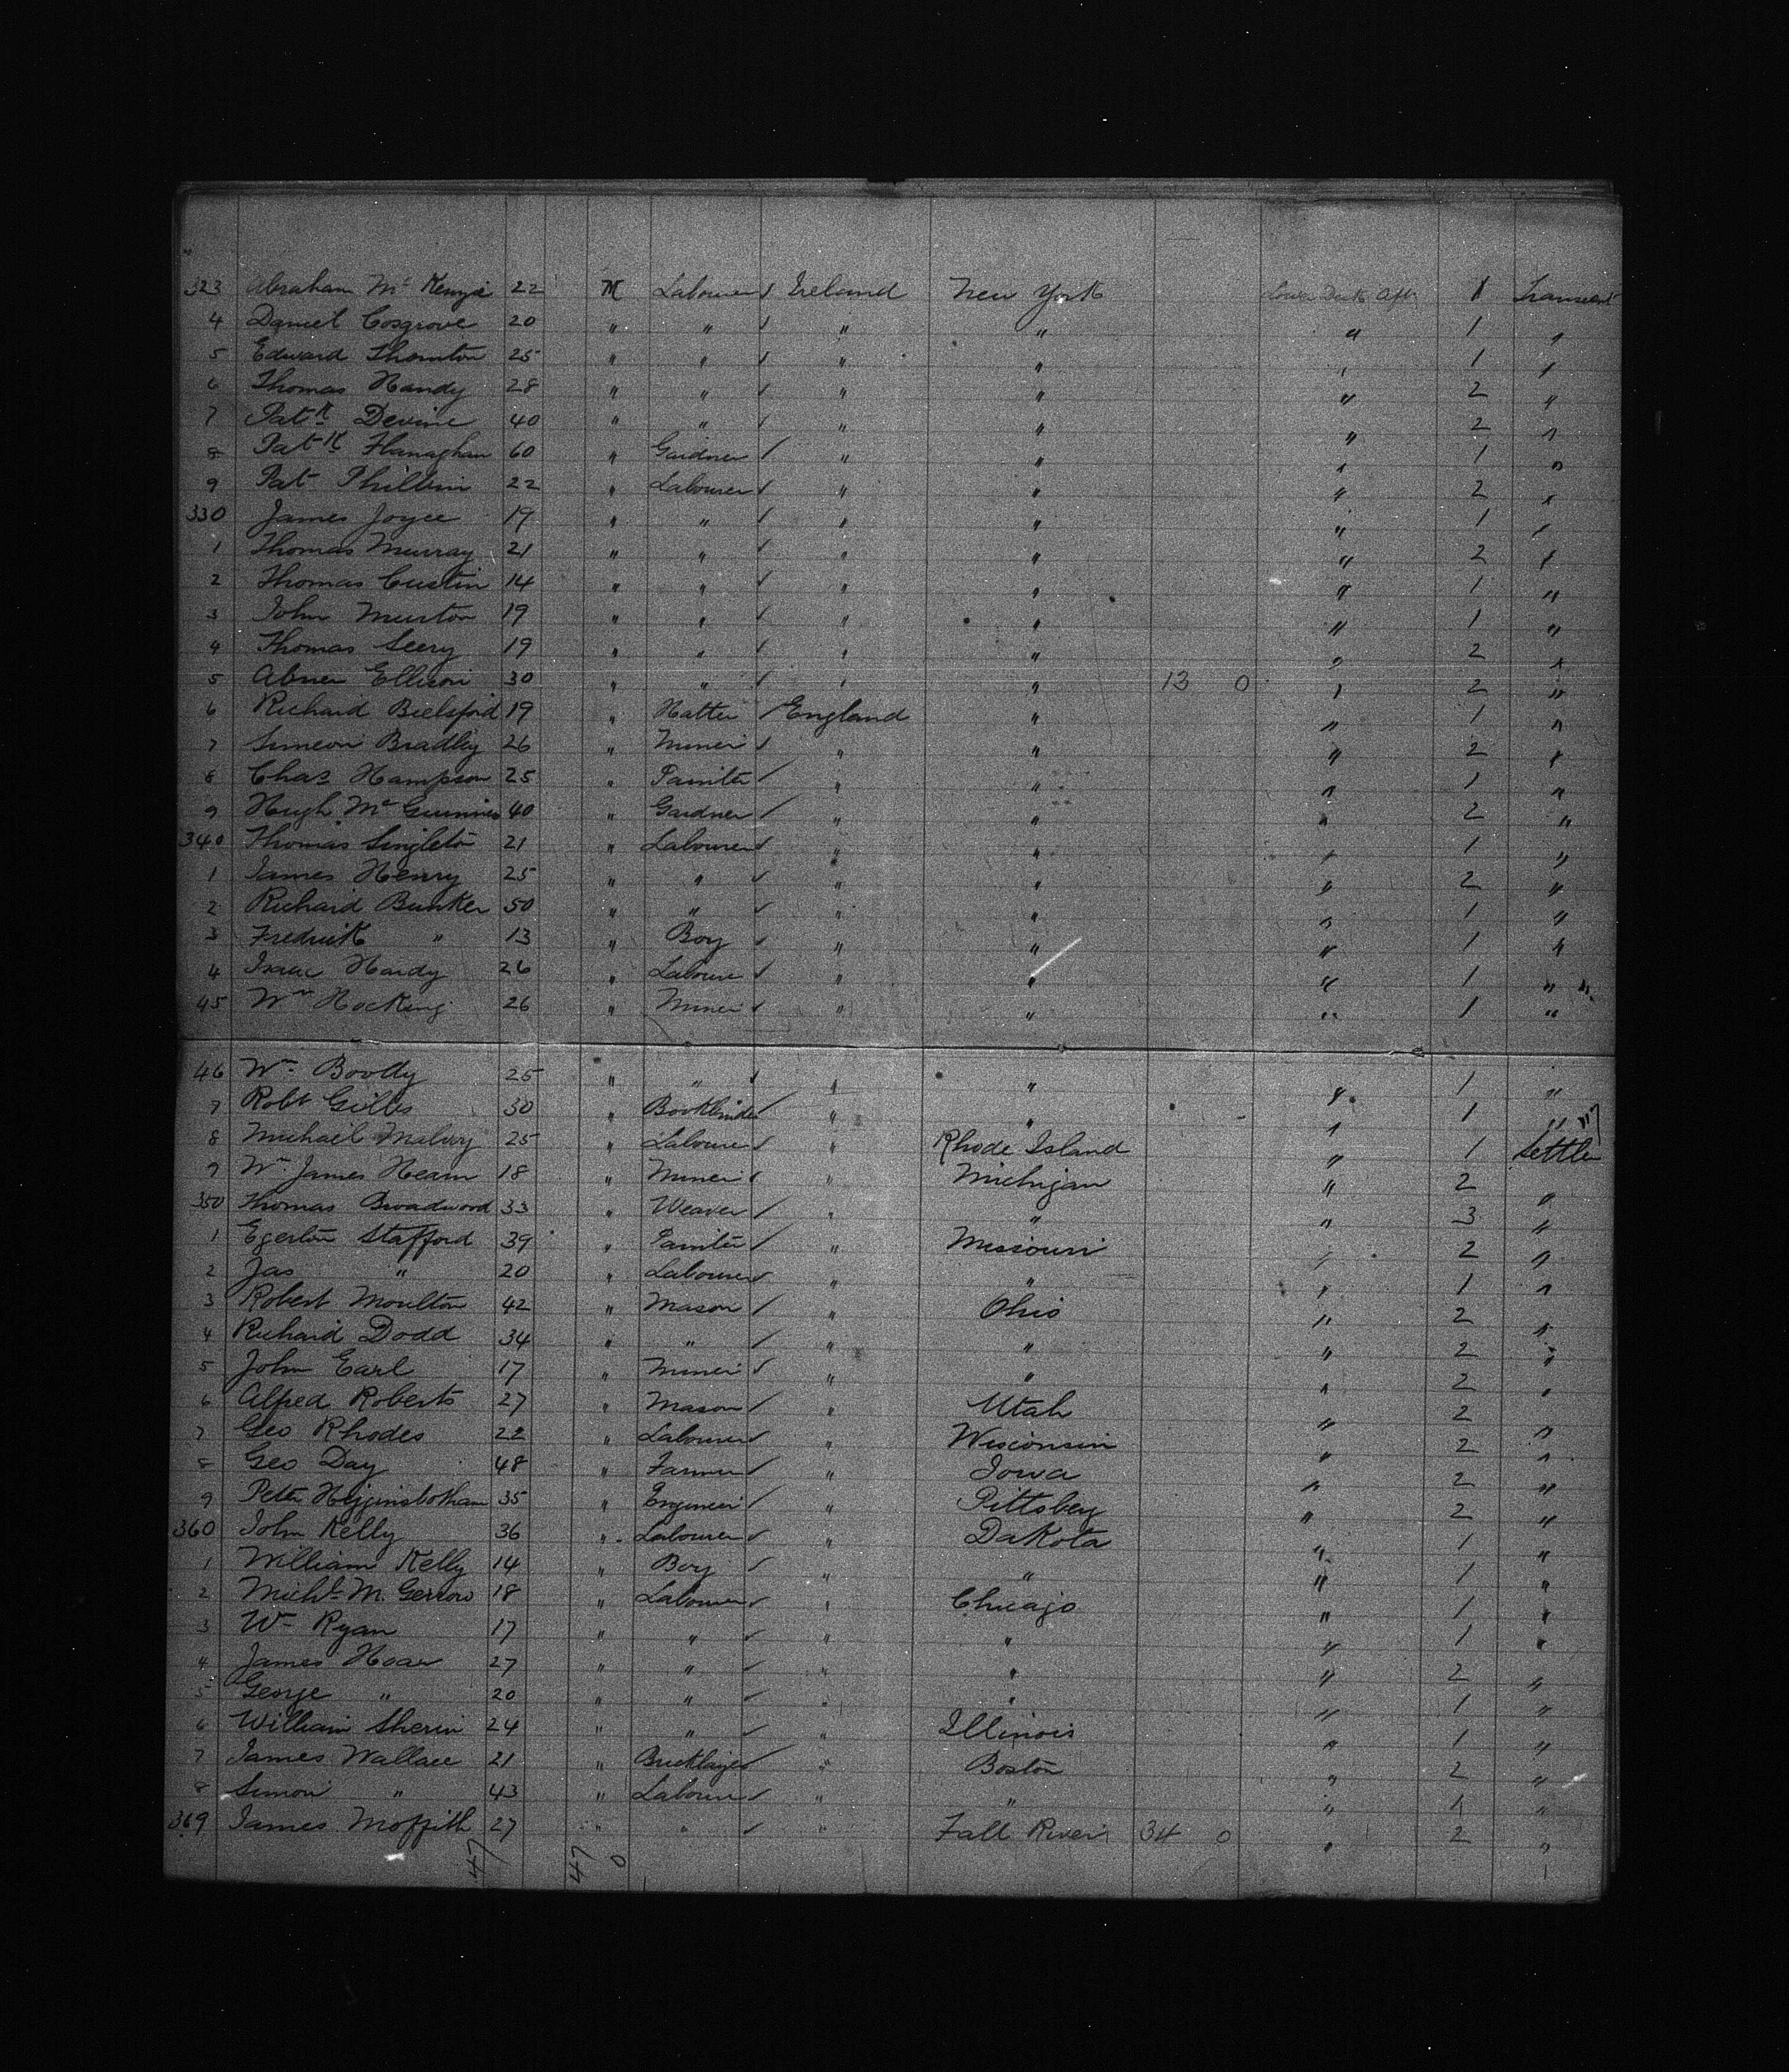 323 Abraham Mc Kenzie 22 M Labourer ✓ Ireland New York Lower Deck Aft 1 Transient
4 Daniel Cosgrove 20 " " ✓ " " " 1 "
5 Edward Thornton 25 " " ✓ " " " 1 "
6 Thomas Handy 28 " " ✓ " " " 2 "
7 Patk Devine 40 " " ✓ " " " 2 "
8 Patk Flanaghan 60 " Gardner ✓ " " " 1 "
9 Pat Philbin 22 " Labourer ✓ " " " 2 "
330 James Joyce 19 " " ✓ " " " 1 "
1 Thomas Murray 21 " " ✓ " " " 2 "
2 Thomas Custin 14 " " ✓ " " " 1 "
3 John Murton 19 " " ✓ " " " 1 "
4 Thomas Seery 19 " " ✓ " " " 2 "
5 Abner Ellison 30 " " ✓ " " 13 0 " 2 "
6 Richard 19 " Hatter ✓ England " " 1 "
7 Simeon Bradley 26 " Miner ✓ " " " 2 "
8 Chas Hampson 25 " Painter ✓ " " " 1 "
9 Hugh Mc 40 " Gardner ✓ " " " 2 "
340 Thomas Singleton 21 " Labourer ✓ " " " 1 "
1 James Henry 25 " " ✓ " " " 2 "
2 Richard Bunker 50 " " ✓ " " " 1 "
3 Fredrick " 13 " Boy ✓ " " " 1 "
4 Isaac Hardy 26 " Labourer ✓ " " " 1 " "
45 Wm Hocking 26 " Miner ✓ " " " 1 "
46 Wm 25 " " ✓ " " " 1 "
7 Robt Gillis 30 " Bookbinder ✓ " " " 1 "
8 Michael 25 " Labourer ✓ " Rhode Island " 1 Settler
9 Wm James Hearn 18 " Miner ✓ " Michigan " 2 "
350 Thomas Broadwood 33 " Weaver ✓ " " " 3 "
1 Egerton Stafford 39 " Painter ✓ " Missouri " 2 "
2 Jas " 20 " Labourer ✓ " " " 1 "
3 Robert Moulton 42 " Mason ✓ " Ohio " 2 "
4 Richard Dodd 34 " " ✓ " " " 2 "
5 John Earl 17 " Miner ✓ " " " 2 "
6 Alfred Roberts 27 " Mason ✓ " Utah " 2 "
7 Geo Rhodes 22 " Labourer ✓ " Wisconsin " 2 "
8 Geo Day 48 " Farmer ✓ " Iowa " 2 "
9 Peter Higginsbotham 35 " Engineer ✓ " Pittsberg " 2 "
360 John Kelly 36 " Labourer ✓ " Dakota " 1 "
1 William Kelly 14 " Boy ✓ " " " 1 "
2 Michl M. 18 " Labourer ✓ " Chicago " 1 "
3 Wm Ryan 17 " " ✓ " " " 1 "
4 James Hoar 27 " " ✓ " " " 2 "
5 George " 20 " " ✓ " " " 1 "
6 William Sherin 24 " " ✓ " Illinois " 1 "
7 James Wallace 21 " Bricklayer ✓ " Boston " 2 "
8 Simon " 43 " Labourer ✓ " " " 1 "
369 James Moffith 27 " " ✓ " Fall River 34 0 " 2 "
47 47 0